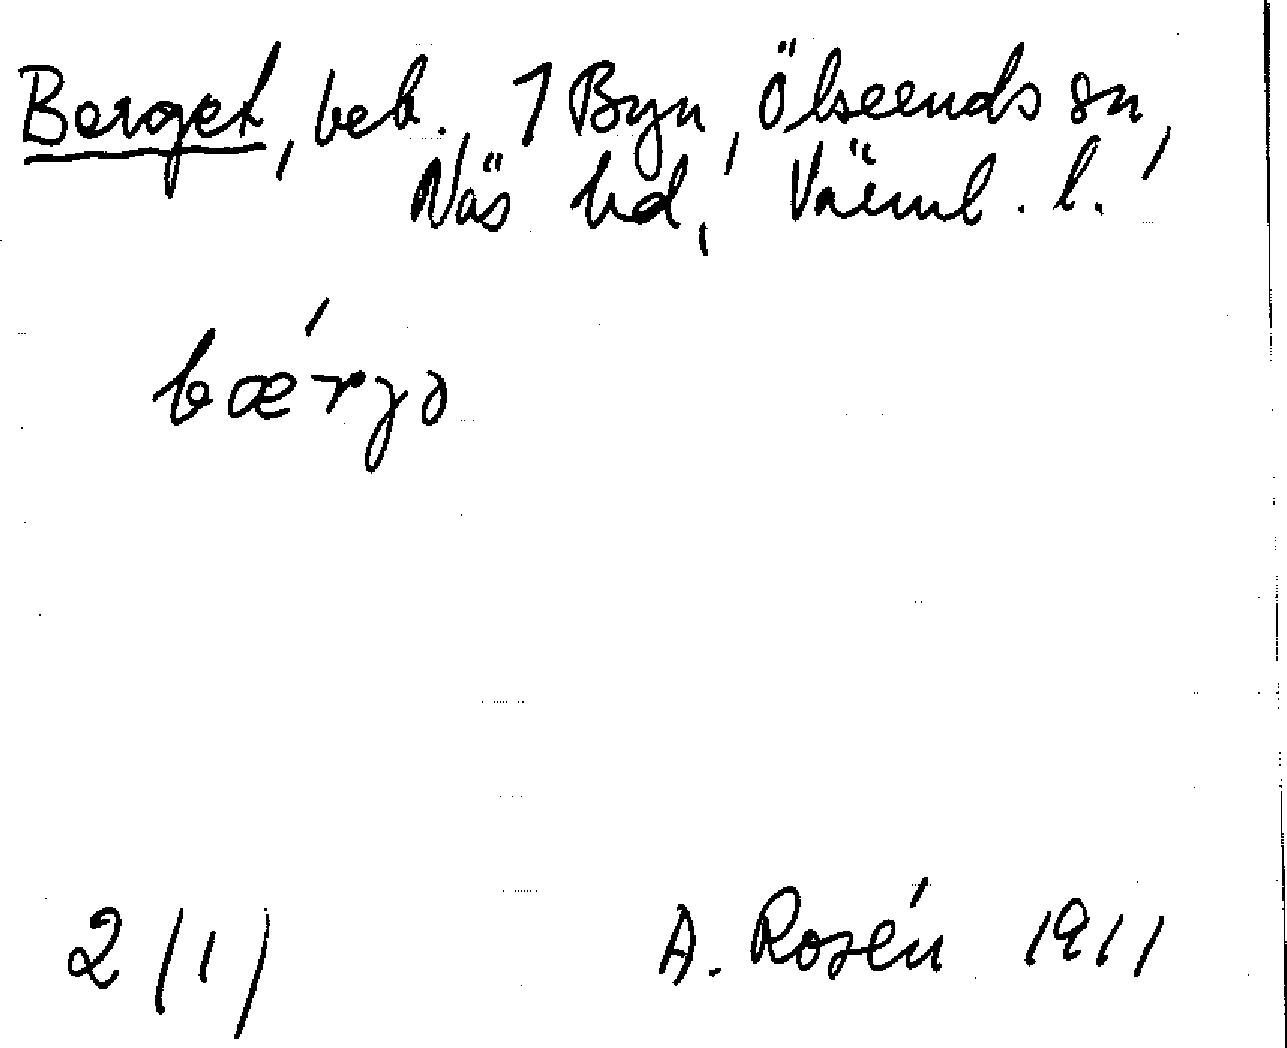 Berget, beb., 1 Byn, Ölseruds sn,
Näs hd, Värml. l.
bǽrgə
2 (1) A. Rosén 1911